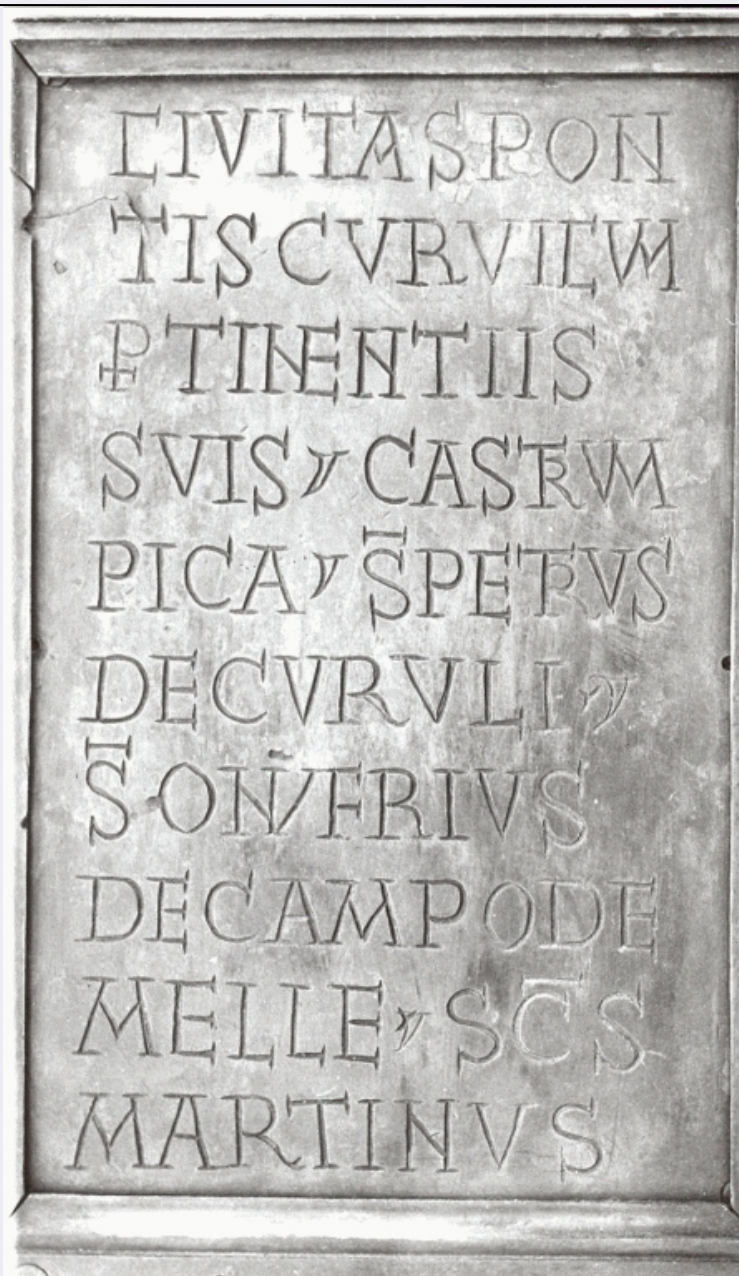 CIVITASPON
TISCVRVICVM
ꝑTINENTIIS
SVIS⸴CASTRVM
PICA⸴S̅PETRVS
DECVRVLI⸴
S̅·ONVFRIVS
DECAMPODE
MELLE⸴SC̅S
MARTINVS